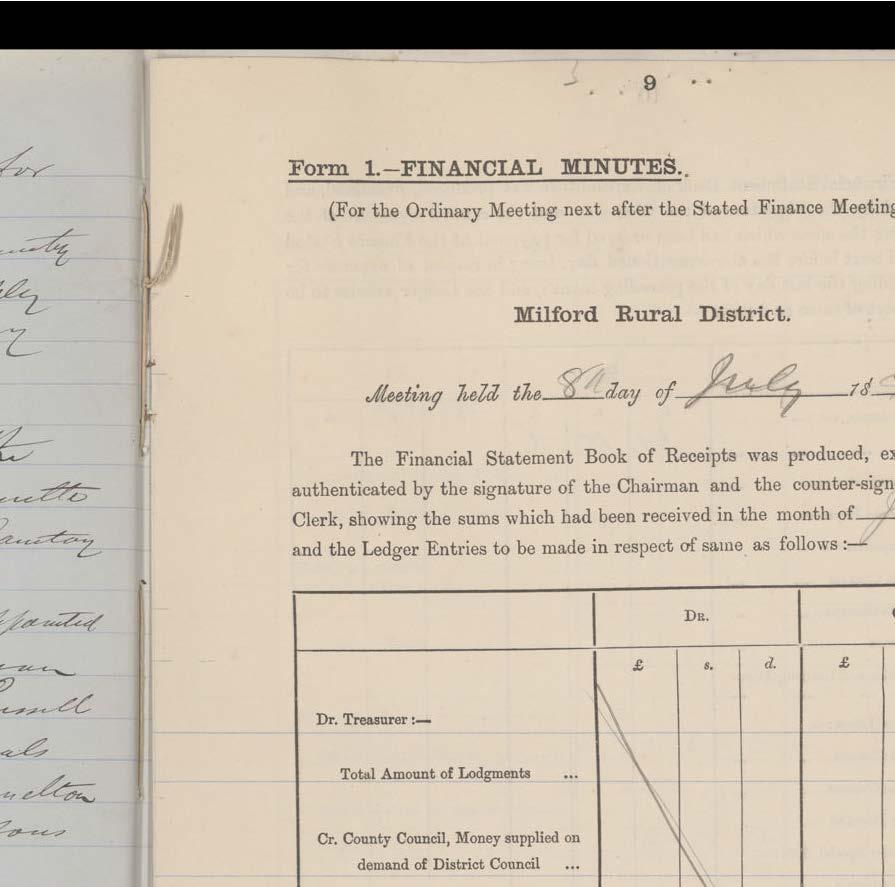 9
Form 1.—FINANCIAL MINUTES.
(For the Ordinary Meeting next after the Stated Finance Meeting
Milford Rural District.
Meeting held the 8th day of July 18
The Financial Statement Book of Receipts was produced, ex
authenticated by the signature of the Chairman and the counter-sign
Clerk, showing the sums which had been received in the month of J
and the Ledger Entries to be made in respect of same as follows :—
DR.
£ s. d. £
Dr. Treasurer :—
Total Amount of Lodgments ...
Cr. County Council, Money supplied on
demand of District Council ...
for
ppointed